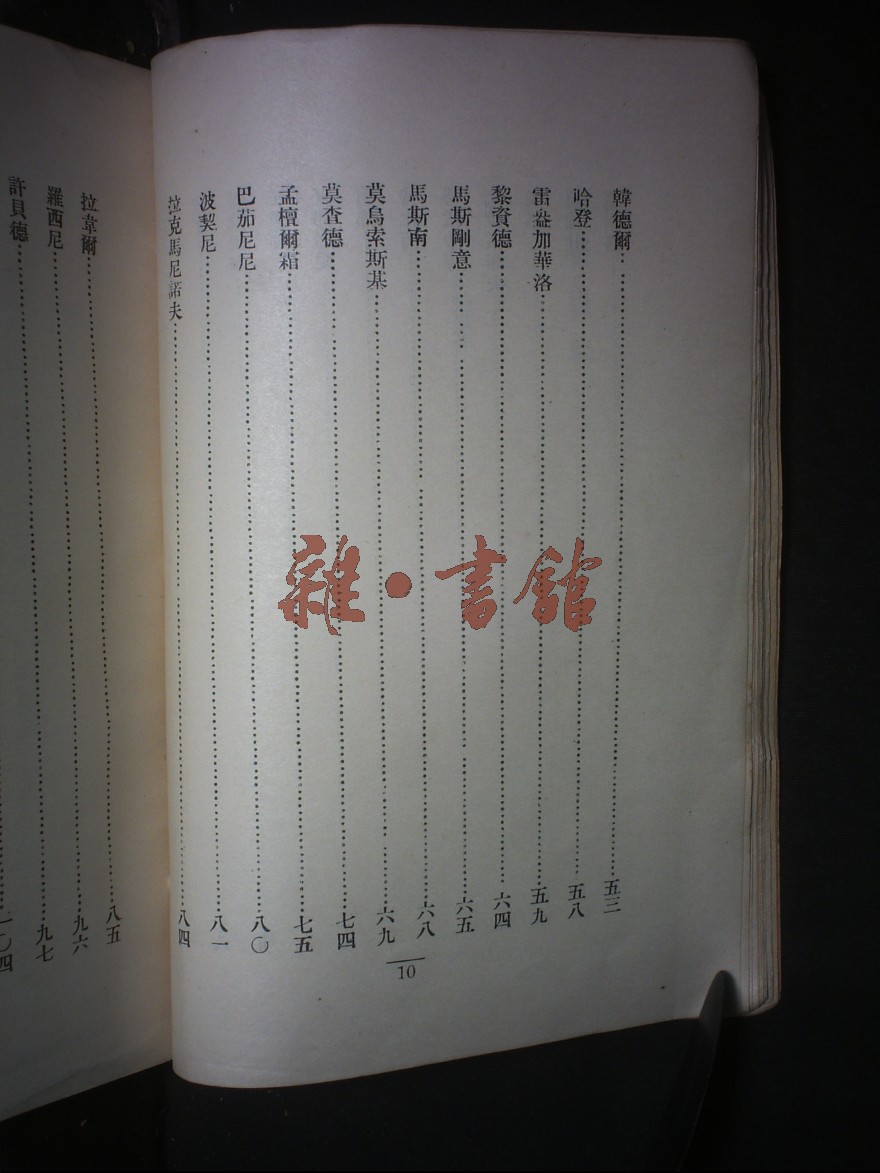 韓德爾……五三
哈登……五八
雷盎加華洛……五九
黎資德……六四
馬斯剛意……六五
馬斯南……六八
莫烏索斯基……六九
莫查德……七四
孟檀爾霜……七五
巴茄尼尼……八〇
波契尼……八一
拉克馬尼諾夫……八四
10
拉韋爾……八五
羅西尼……九六
許貝德……九七
一〇四
雜·書館